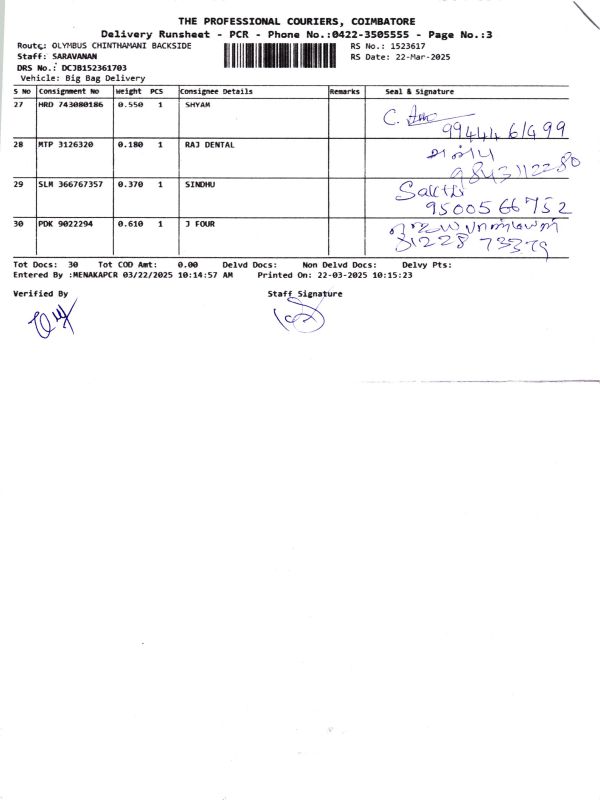 THE PROFESSIONAL COURIERS, COIMBATORE
Delivery Runsheet - PCR - Phone No.:0422-3505555 - Page No.:3
Route: OLYMBUS CHINTHAMANI BACKSIDE RS No.: 1523617
Staff: SARAVANAN RS Date: 22-Mar-2025
DRS No.: DCJB152361703
Vehicle: Big Bag Delivery
S No Consignment No Weight PCS Consignee Details Remarks Seal & Signature
27 HRD 743080186 0.550 1 SHYAM
C.
99444 61499
28 MTP 3126320 0.180 1 RAJ DENTAL
9843112280
29 SLM 366767357 0.370 1 SINDHU Sakthi
9500566752
30 PDK 9022294 0.610 1 J FOUR
81228 73379
Tot Docs: 30 Tot COD Amt: 0.00 Delvd Docs: Non Delvd Docs: Delvy Pts:
Entered By :MENAKAPCR 03/22/2025 10:14:57 AM Printed On: 22-03-2025 10:15:23
Verified By Staff Signature